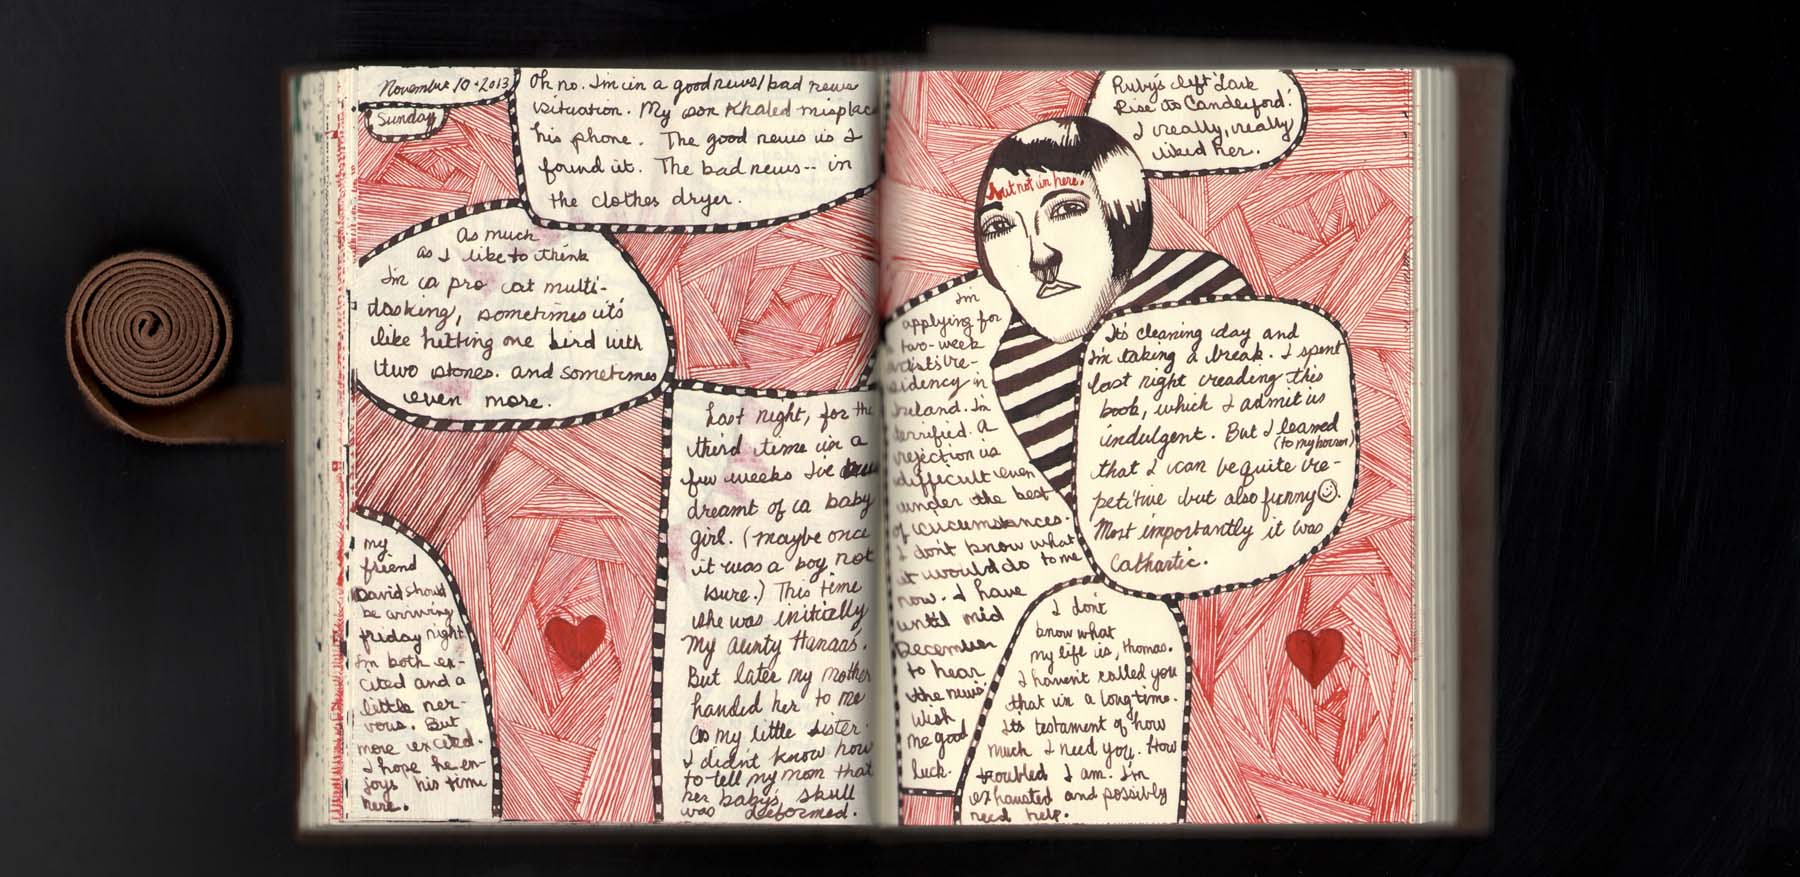 November 10 • 2013
Sunday
Oh no. I'm in a good news/bad news
situation. My son Khaled misplac
his phone. The good news is I
found it. The bad news -- in
the clothes dryer.
As much
as I like to think
I'm a pro at multi-
tasking, sometimes it's
like hitting one bird with
two stones. and sometimes
even more.
my
friend
David should
be arriving
friday night
I'm both ex-
cited and a
little ner-
vous. But
more excited.
I hope he en-
joys his time
here.
Last night, for the
third time in a
few weeks I've
dreamt of a baby
girl. (maybe once
it was a boy not
sure.) This time
she was initially
my Aunty Hanaa's.
But later my mother
handed her to me
as my little sister.
I didn't know how
to tell my mom that
her baby's skull
was deformed.
Ruby's left Lark
Rise to Candleford!
I really, really
liked her.
but not in here.
I'm
applying for
two-week
artists re-
sidency in
Ireland. I'm
terrified. A
rejection is
difficult even
under the best
of circumstances.
I don't know what
it would do to me
now. I have
until mid
December
to hear
the news.
Wish
me good
luck.
It's cleaning day and
I'm taking a break. I spent
last night reading this
book, which I admit is
indulgent. But I learned
(to my horror)
that I can be quite re-
petitive but also funny☺.
Most importantly it was
Cathartic.
I don't
know what
my life is, Thomas.
I haven't called you
that in a long time.
Its testament of how
much I need you. How
troubled I am. I'm
exhausted and possibly
need help.